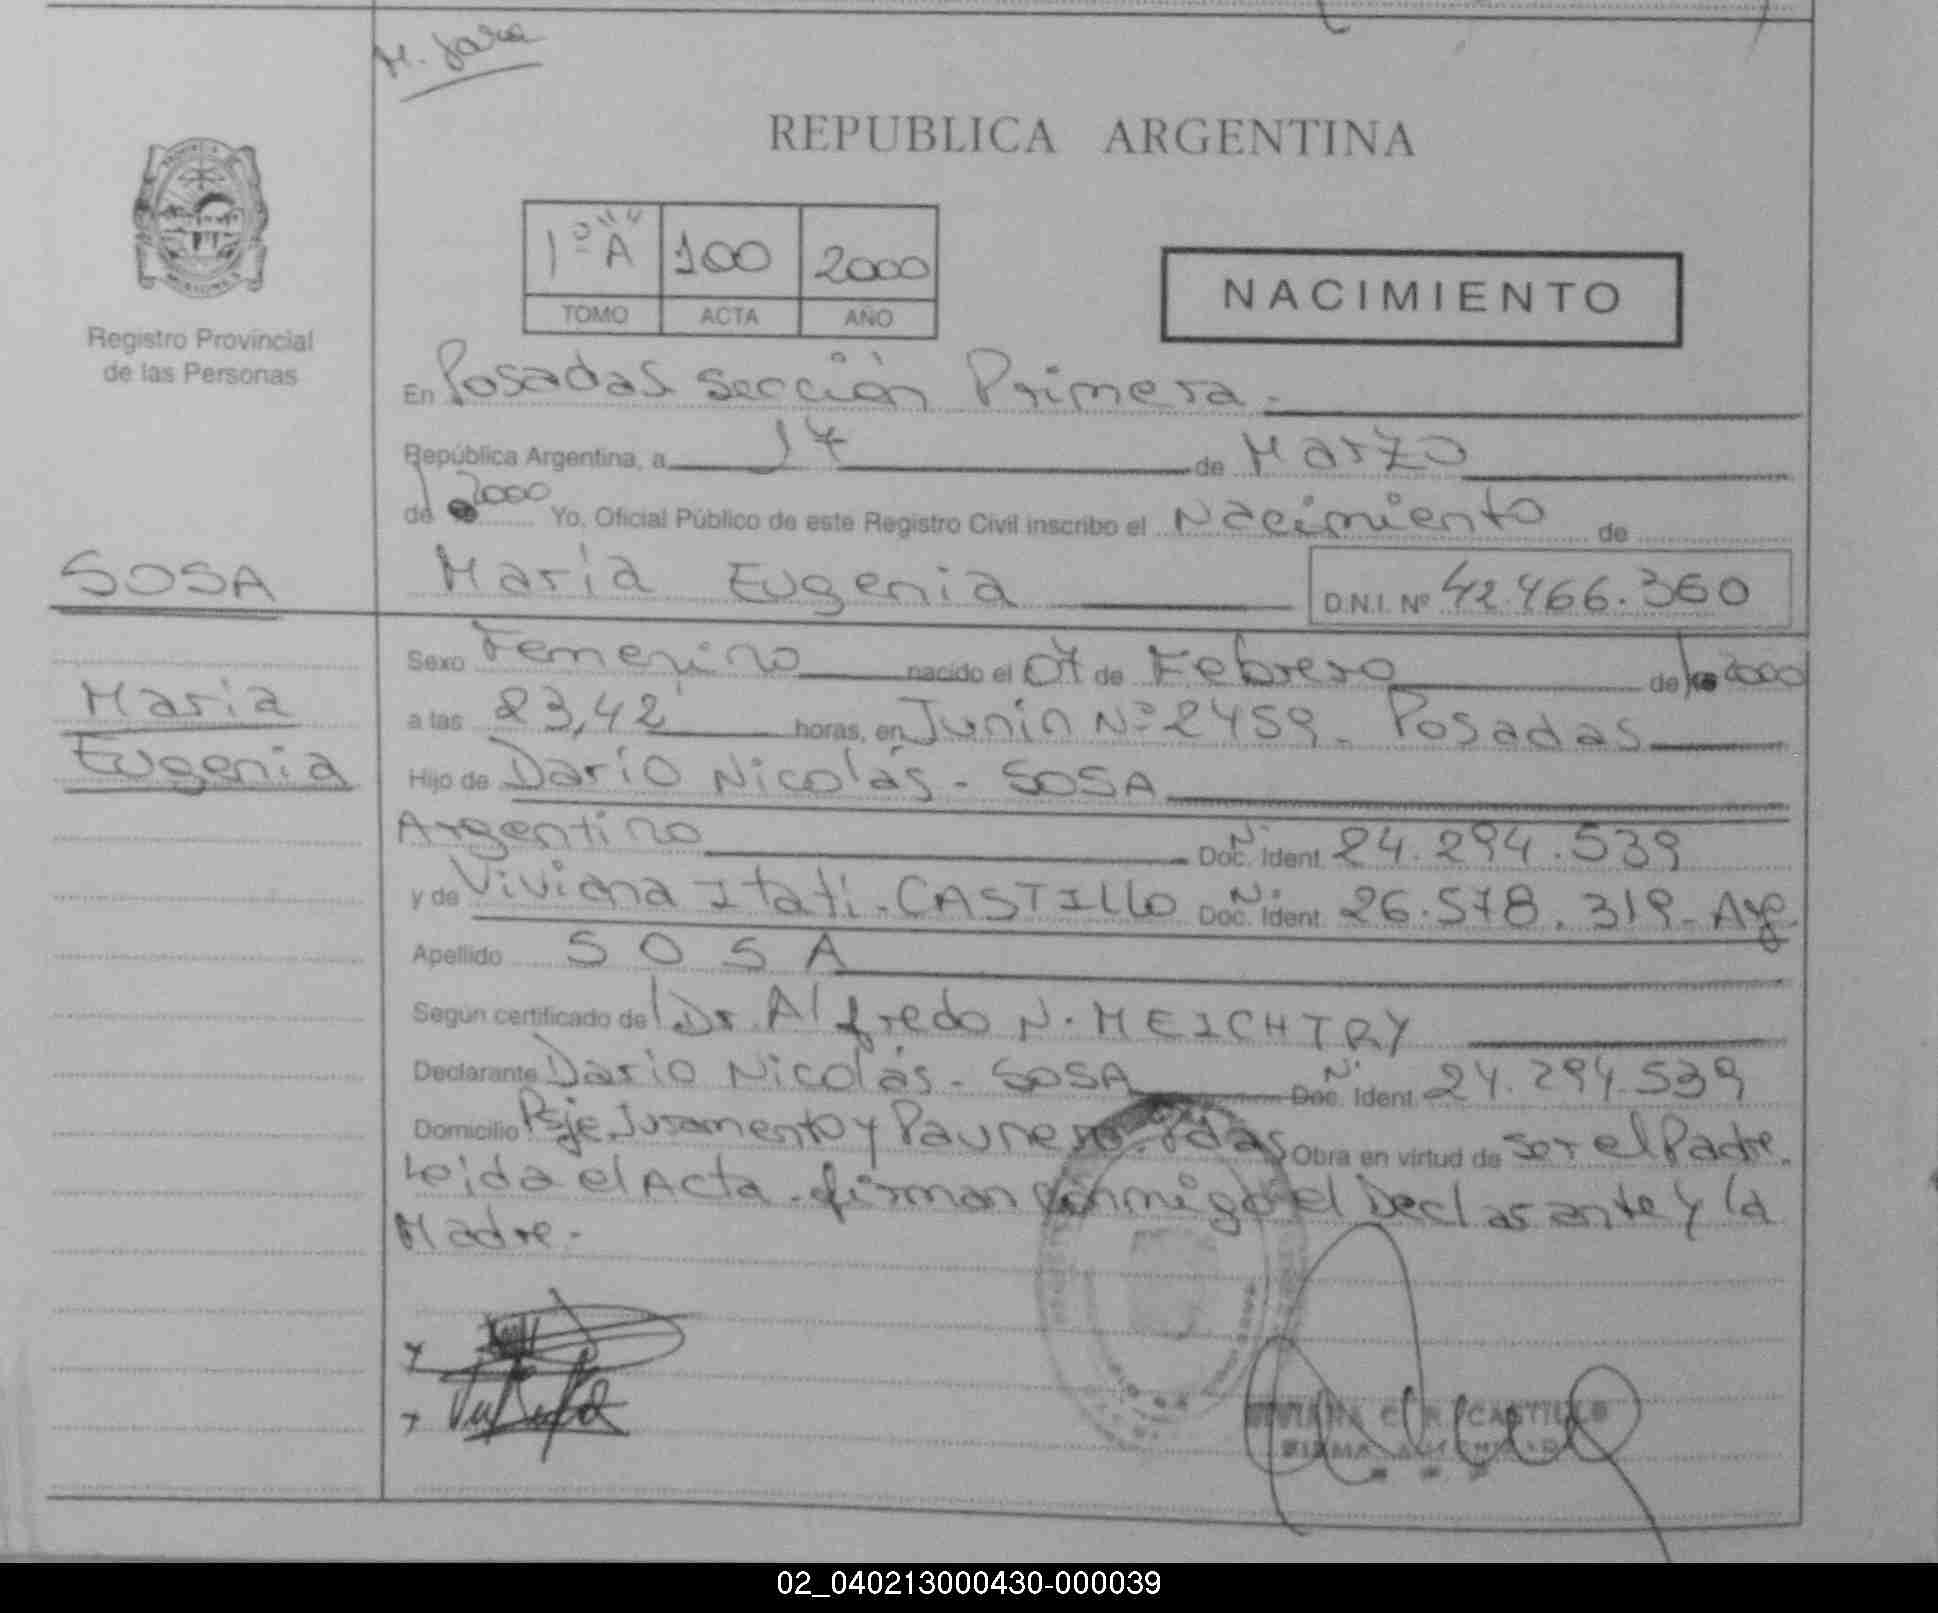 H. Jara
REPUBLICA ARGENTINA
1º "A" 100 2000
TOMO ACTA AÑO
NACIMIENTO
Registro Provincial
de las Personas
En Posadas sección Primera.
República Argentina, a 17 de Marzo
de 2000 Yo, Oficial Público de este Registro Civil inscribo el Nacimiento de
SOSA
María Eugenia D.N.I. Nº 42.466.360
Sexo Femenino nacido el 07 de Febrero de 2000
María
Eugenia
a las 23,42' horas, en Junín Nº 2459. Posadas
Hijo de Darío Nicolás - SOSA
Argentino Nº Doc. Ident. 24.294.539
y de Viviana Itatí - CASTILLO Nº Doc. Ident. 26.578.319 - Arg.
Apellido SOSA
Según certificado de Dr. Alfredo N. MEICHTRY
Declarante Darío Nicolás - SOSA Nº Doc. Ident. 24.294.539
Domicilio Psje. Juramento y Paunero. Pdas Obra en virtud de ser el Padre.
Leida el Acta. firman conmigo el Declarante y la
Madre.-
CASTILLO
FIRMA
02_040213000430-000039